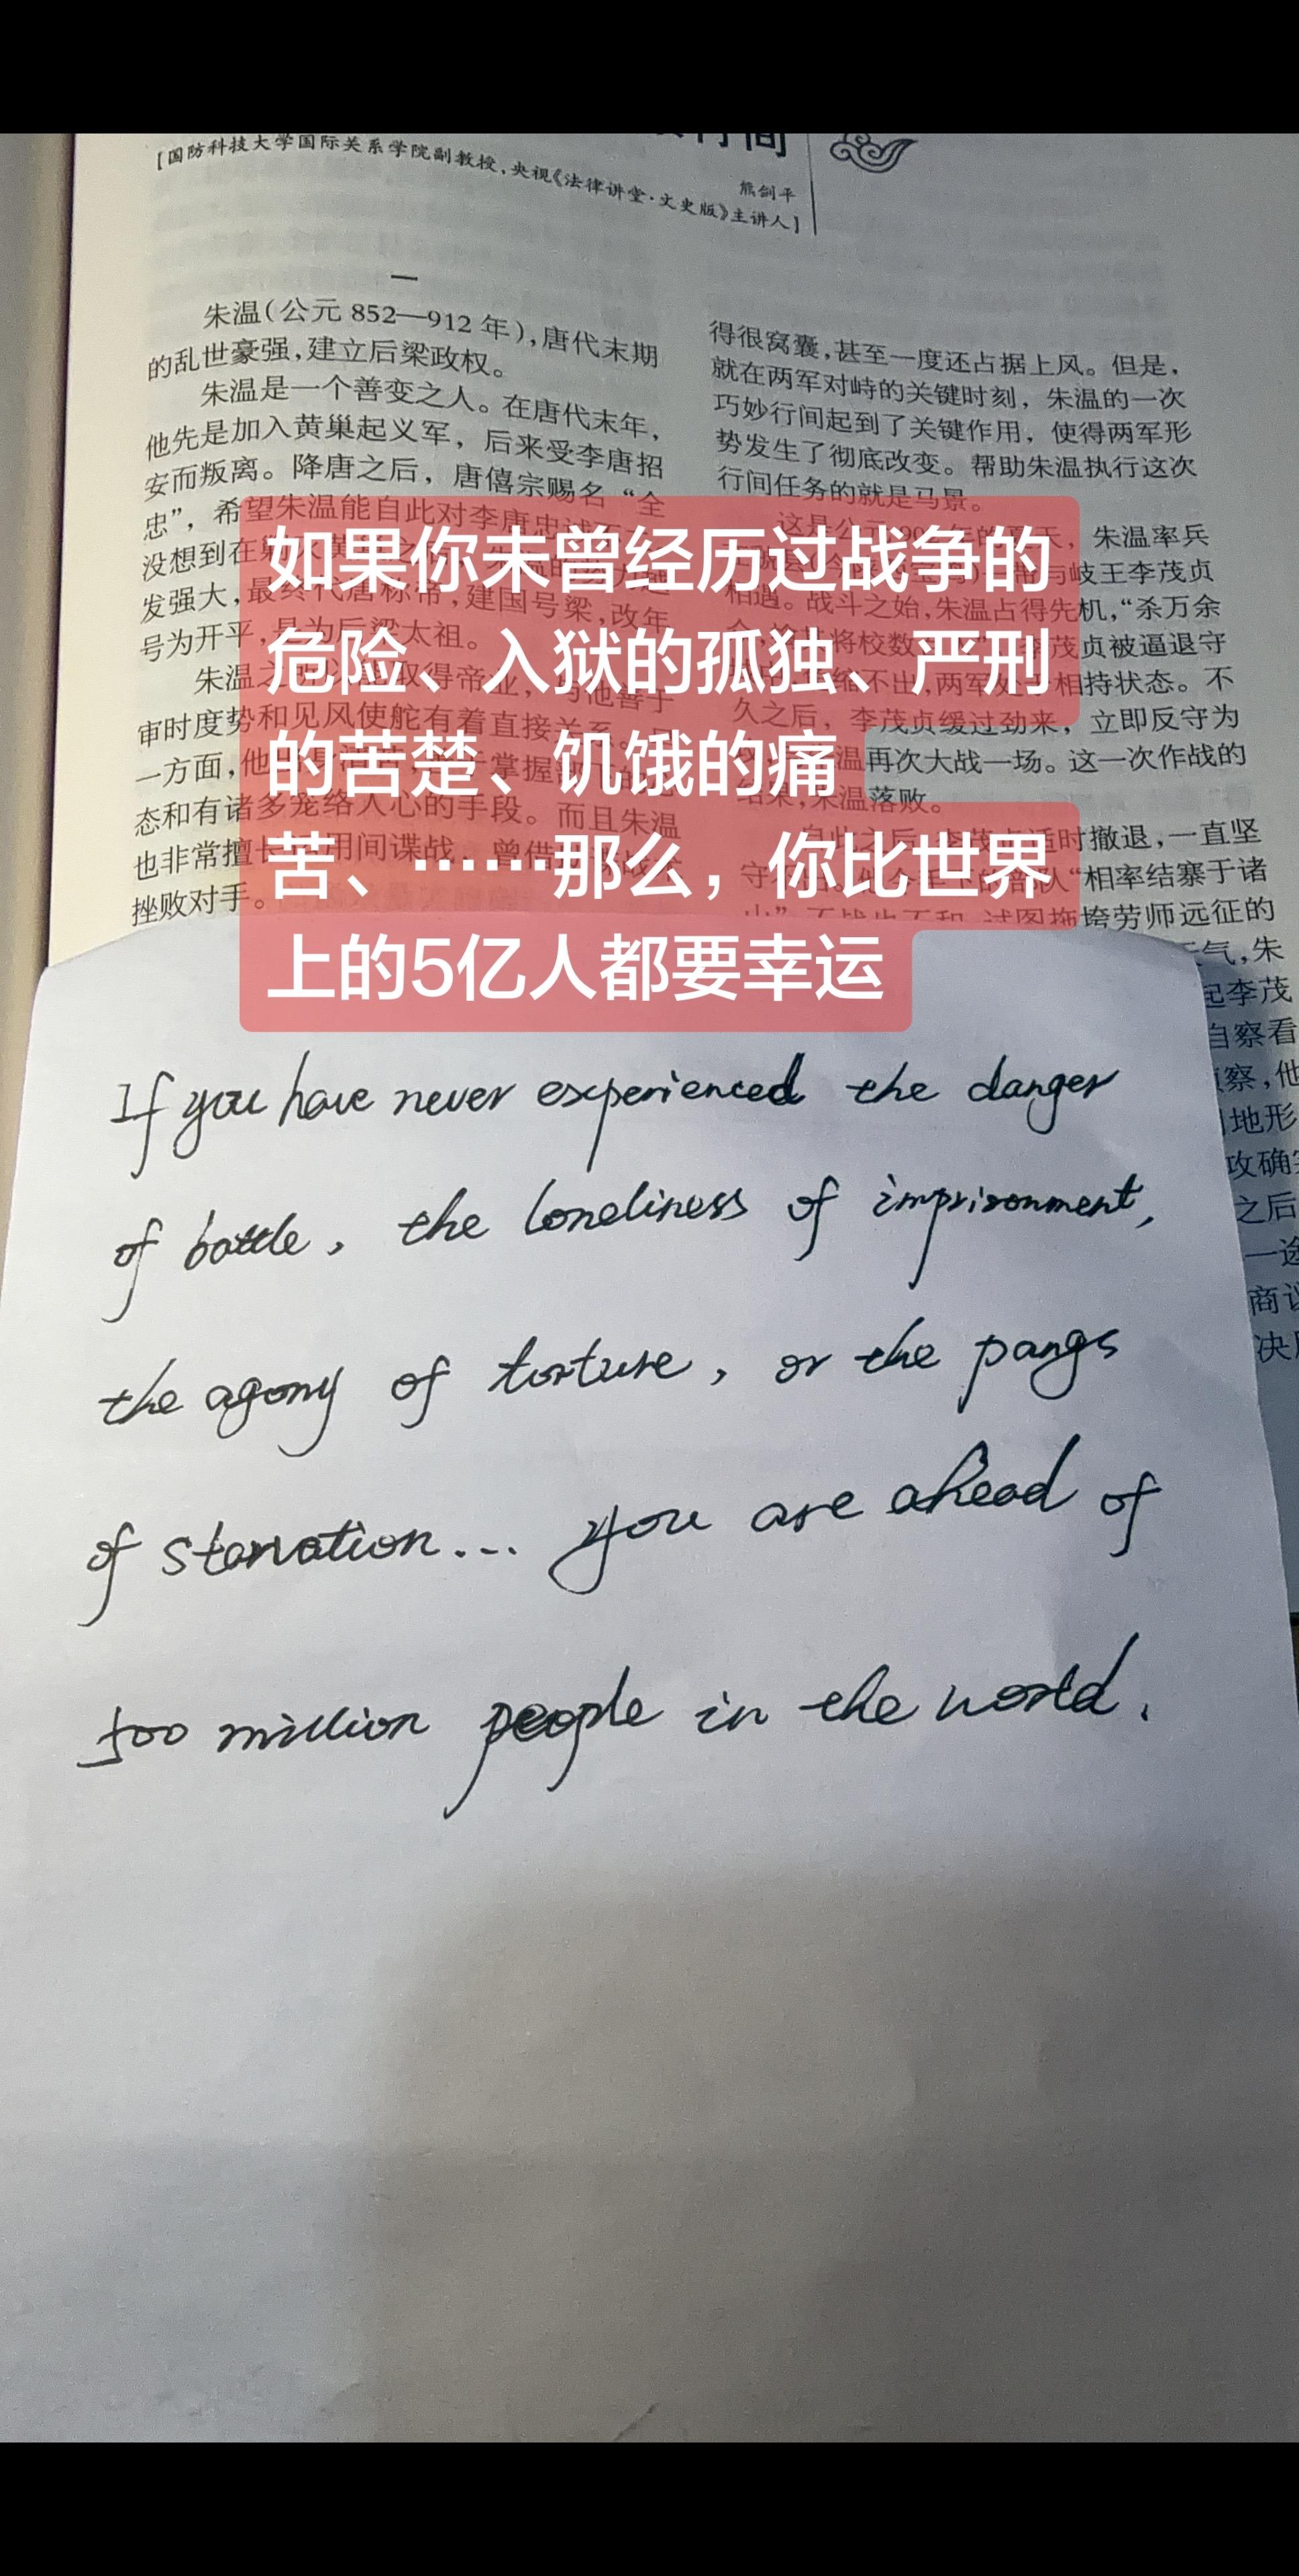 行间
[国防科技大学国际关系学院副教授,央视《法律讲堂·文史版》主讲人]
熊剑平
一
朱温(公元852—912年),唐代末期
的乱世豪强,建立后梁政权。
朱温是一个善变之人。在唐代末年,
他先是加入黄巢起义军,后来受李唐招
安而叛离。降唐之后,唐僖宗赐名“全
忠”,希望朱温能自此对李唐忠诚
没想到在
发强大,最终代唐称帝,建国号梁,改年
号为开平,是为后梁太祖。
朱温之 取得帝业,与他善于
审时度势和见风使舵有着直接关系。
一方面,他 掌握
态和有诸多笼络人心的手段。而且朱温
也非常擅长 用间谍战,曾借
挫败对手。
得很窝囊,甚至一度还占据上风。但是,
就在两军对峙的关键时刻,朱温的一次
巧妙行间起到了关键作用,使得两军形
势发生了彻底改变。帮助朱温执行这次
行间任务的就是马景。
这是公元 年的夏天,朱温率兵
与岐王李茂贞
相遇。战斗之始,朱温占得先机,“杀万余
将校数 李茂贞被逼退守
不出,两军处于相持状态。不
久之后,李茂贞缓过劲来,立即反守为
温再次大战一场。这一次作战的
结果,朱温落败。
自此之后,李茂贞适时撤退,一直坚
守 “相率结寨于诸
山”,不战也不和,试图拖垮劳师远征的
气,朱
起李茂
自察看
察,他
地形
攻确
之后
一途
商议
决
如果你未曾经历过战争的
危险、入狱的孤独、严刑
的苦楚、饥饿的痛
苦、······那么,你比世界
上的5亿人都要幸运
If you have never experienced the danger
of battle, the loneliness of imprisonment,
the agony of torture, or the pangs
of starvation... you are ahead of
500 million people in the world.